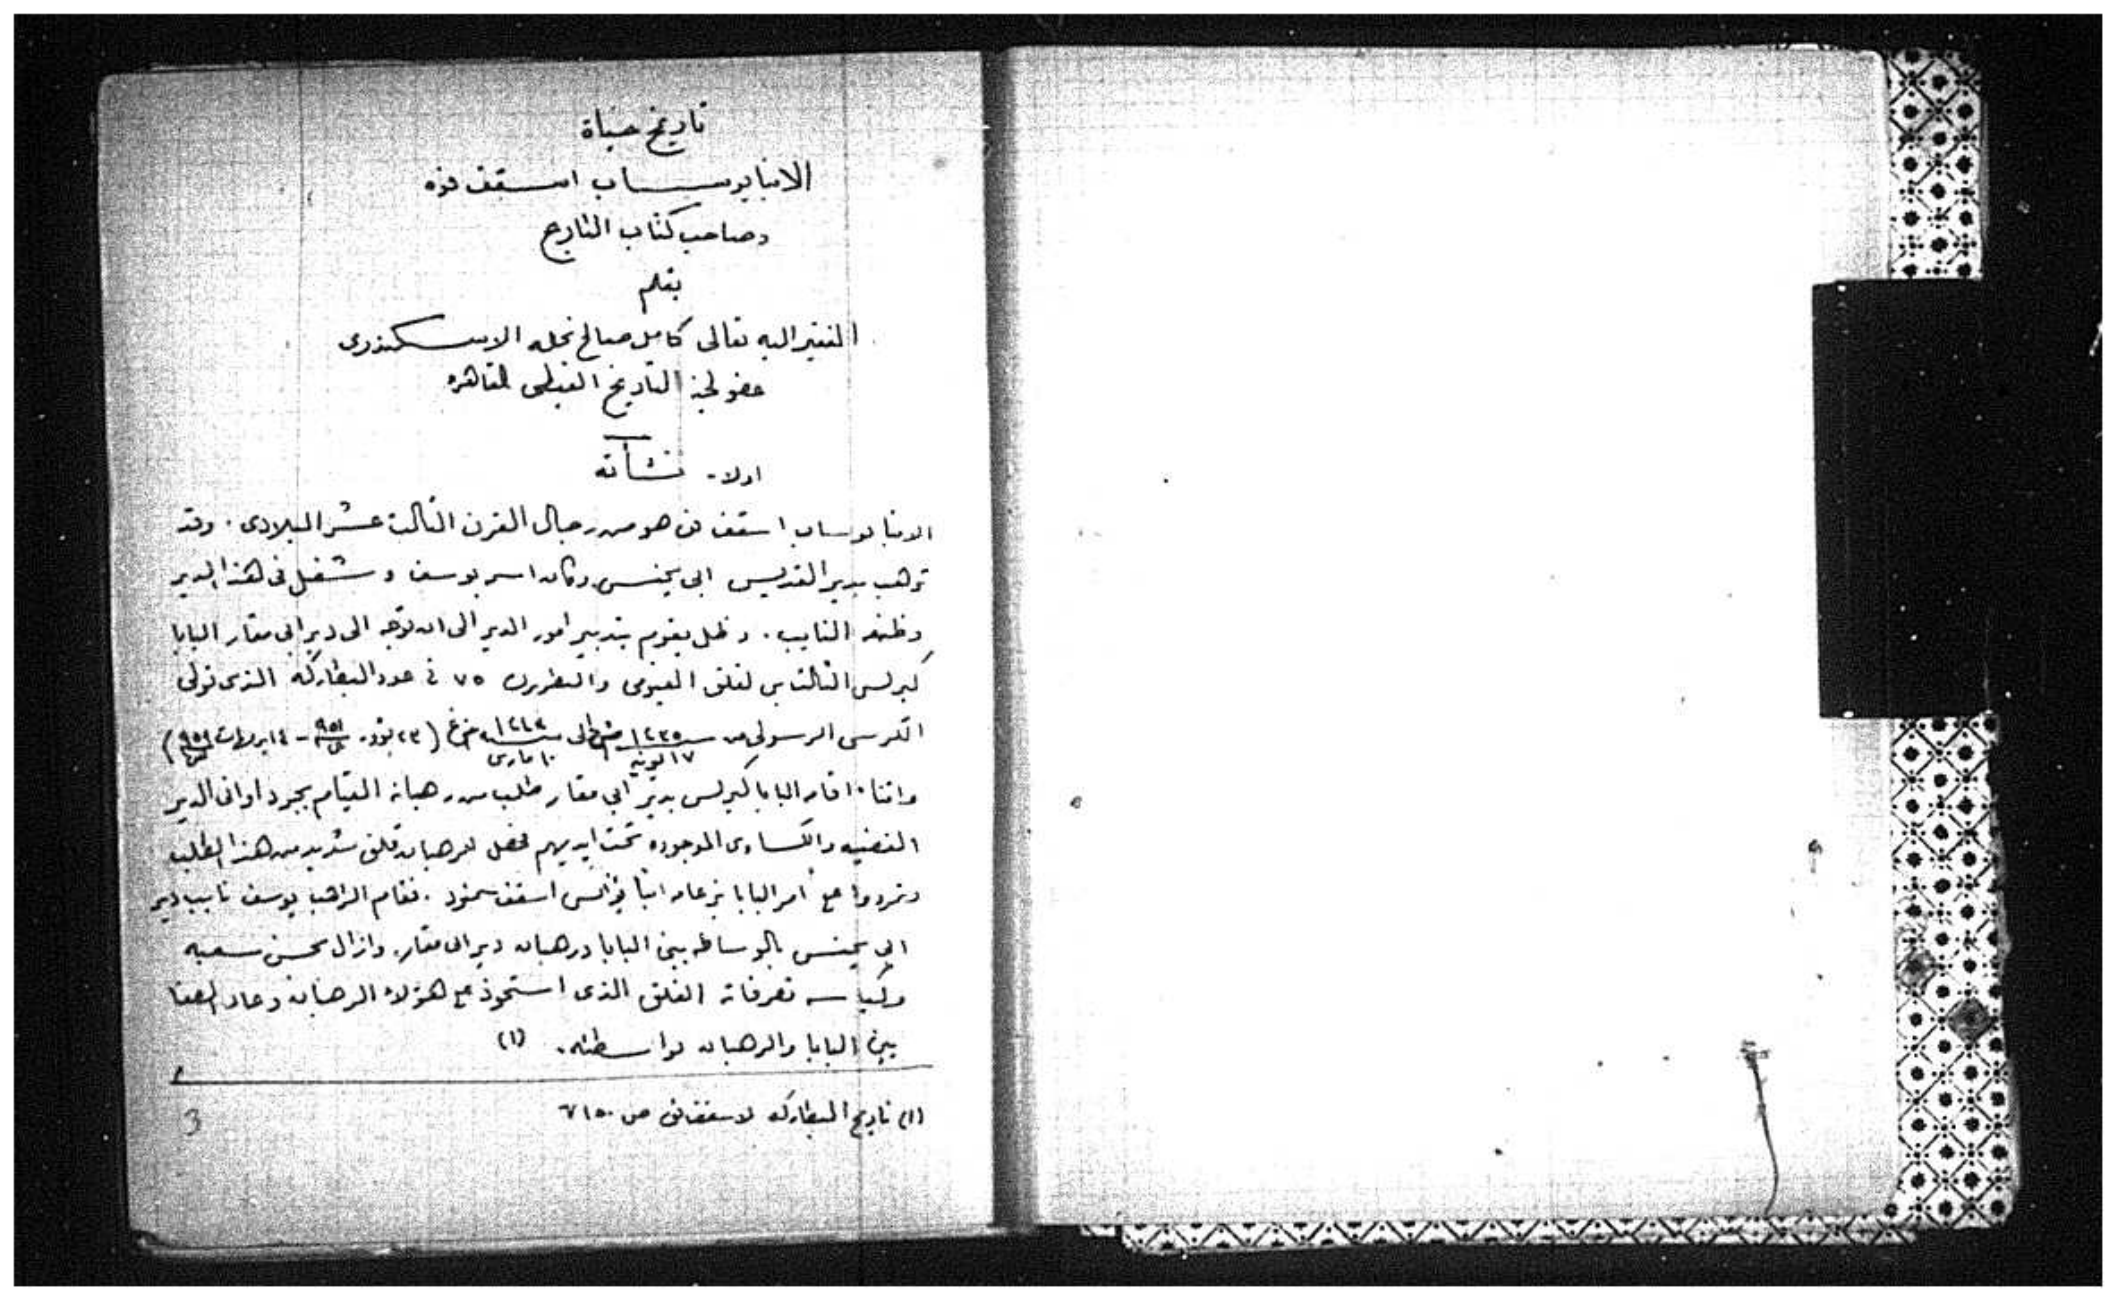 تاريخ حياة
الانبا يوساب اسقف فوه
وصاحب كتاب التاريخ
بقلم
الفقير اليه تعالى كامل صالح نخله الاسكندرى
عضو لجنة التاريخ القبطى بالقاهره
اولا - نشأته
الانبا يوساب اسقف فوه هو من رجال القرن الثالث عشر الميلادى . وقد
ترهب بدير القديس ابى يحنس وكان اسمه يوسف وشغل فى هذا الدير
وظيفة النايب . وظل يقوم بتدبير امور الدير الى ان توجه الى دير ابى مقار البابا
كيرلس الثالث بن لقلق الفيومى والبطريرك ٧٥ فى عدد البطاركه الذى تولى
الكرسى الرسولى من ١٧ يونيه سنة ١٢٣٥ الى ١٠ مارس سنة ١٢٤٣ (٢٣ بؤونه ٩٥١ ش - ١٤ برمهات ٩٥٩ ش)
واثناء اقامة البابا كيرلس بدير ابى مقار طلب من رهبانه القيام بجرد اوانى الدير
الفضيه والكساوى الموجوده تحت ايديهم فحصل للرهبان قلق شديد من هذا الطلب
وتمردوا على امر البابا بزعامة انبا اسقف سمنود . فقام الراهب يوسف نايب دير
ابى يحنس بالوساطه بين البابا ورهبان دير ابى مقار وازال بحسن سعيه
وكياسة تصرفاته القلق الذى استحوذ على هؤلاء الرهبان وعاد الصفا
بين البابا والرهبان بواسطته . (١)
(١) تاريخ البطاركه لاسقف فوه ص
3